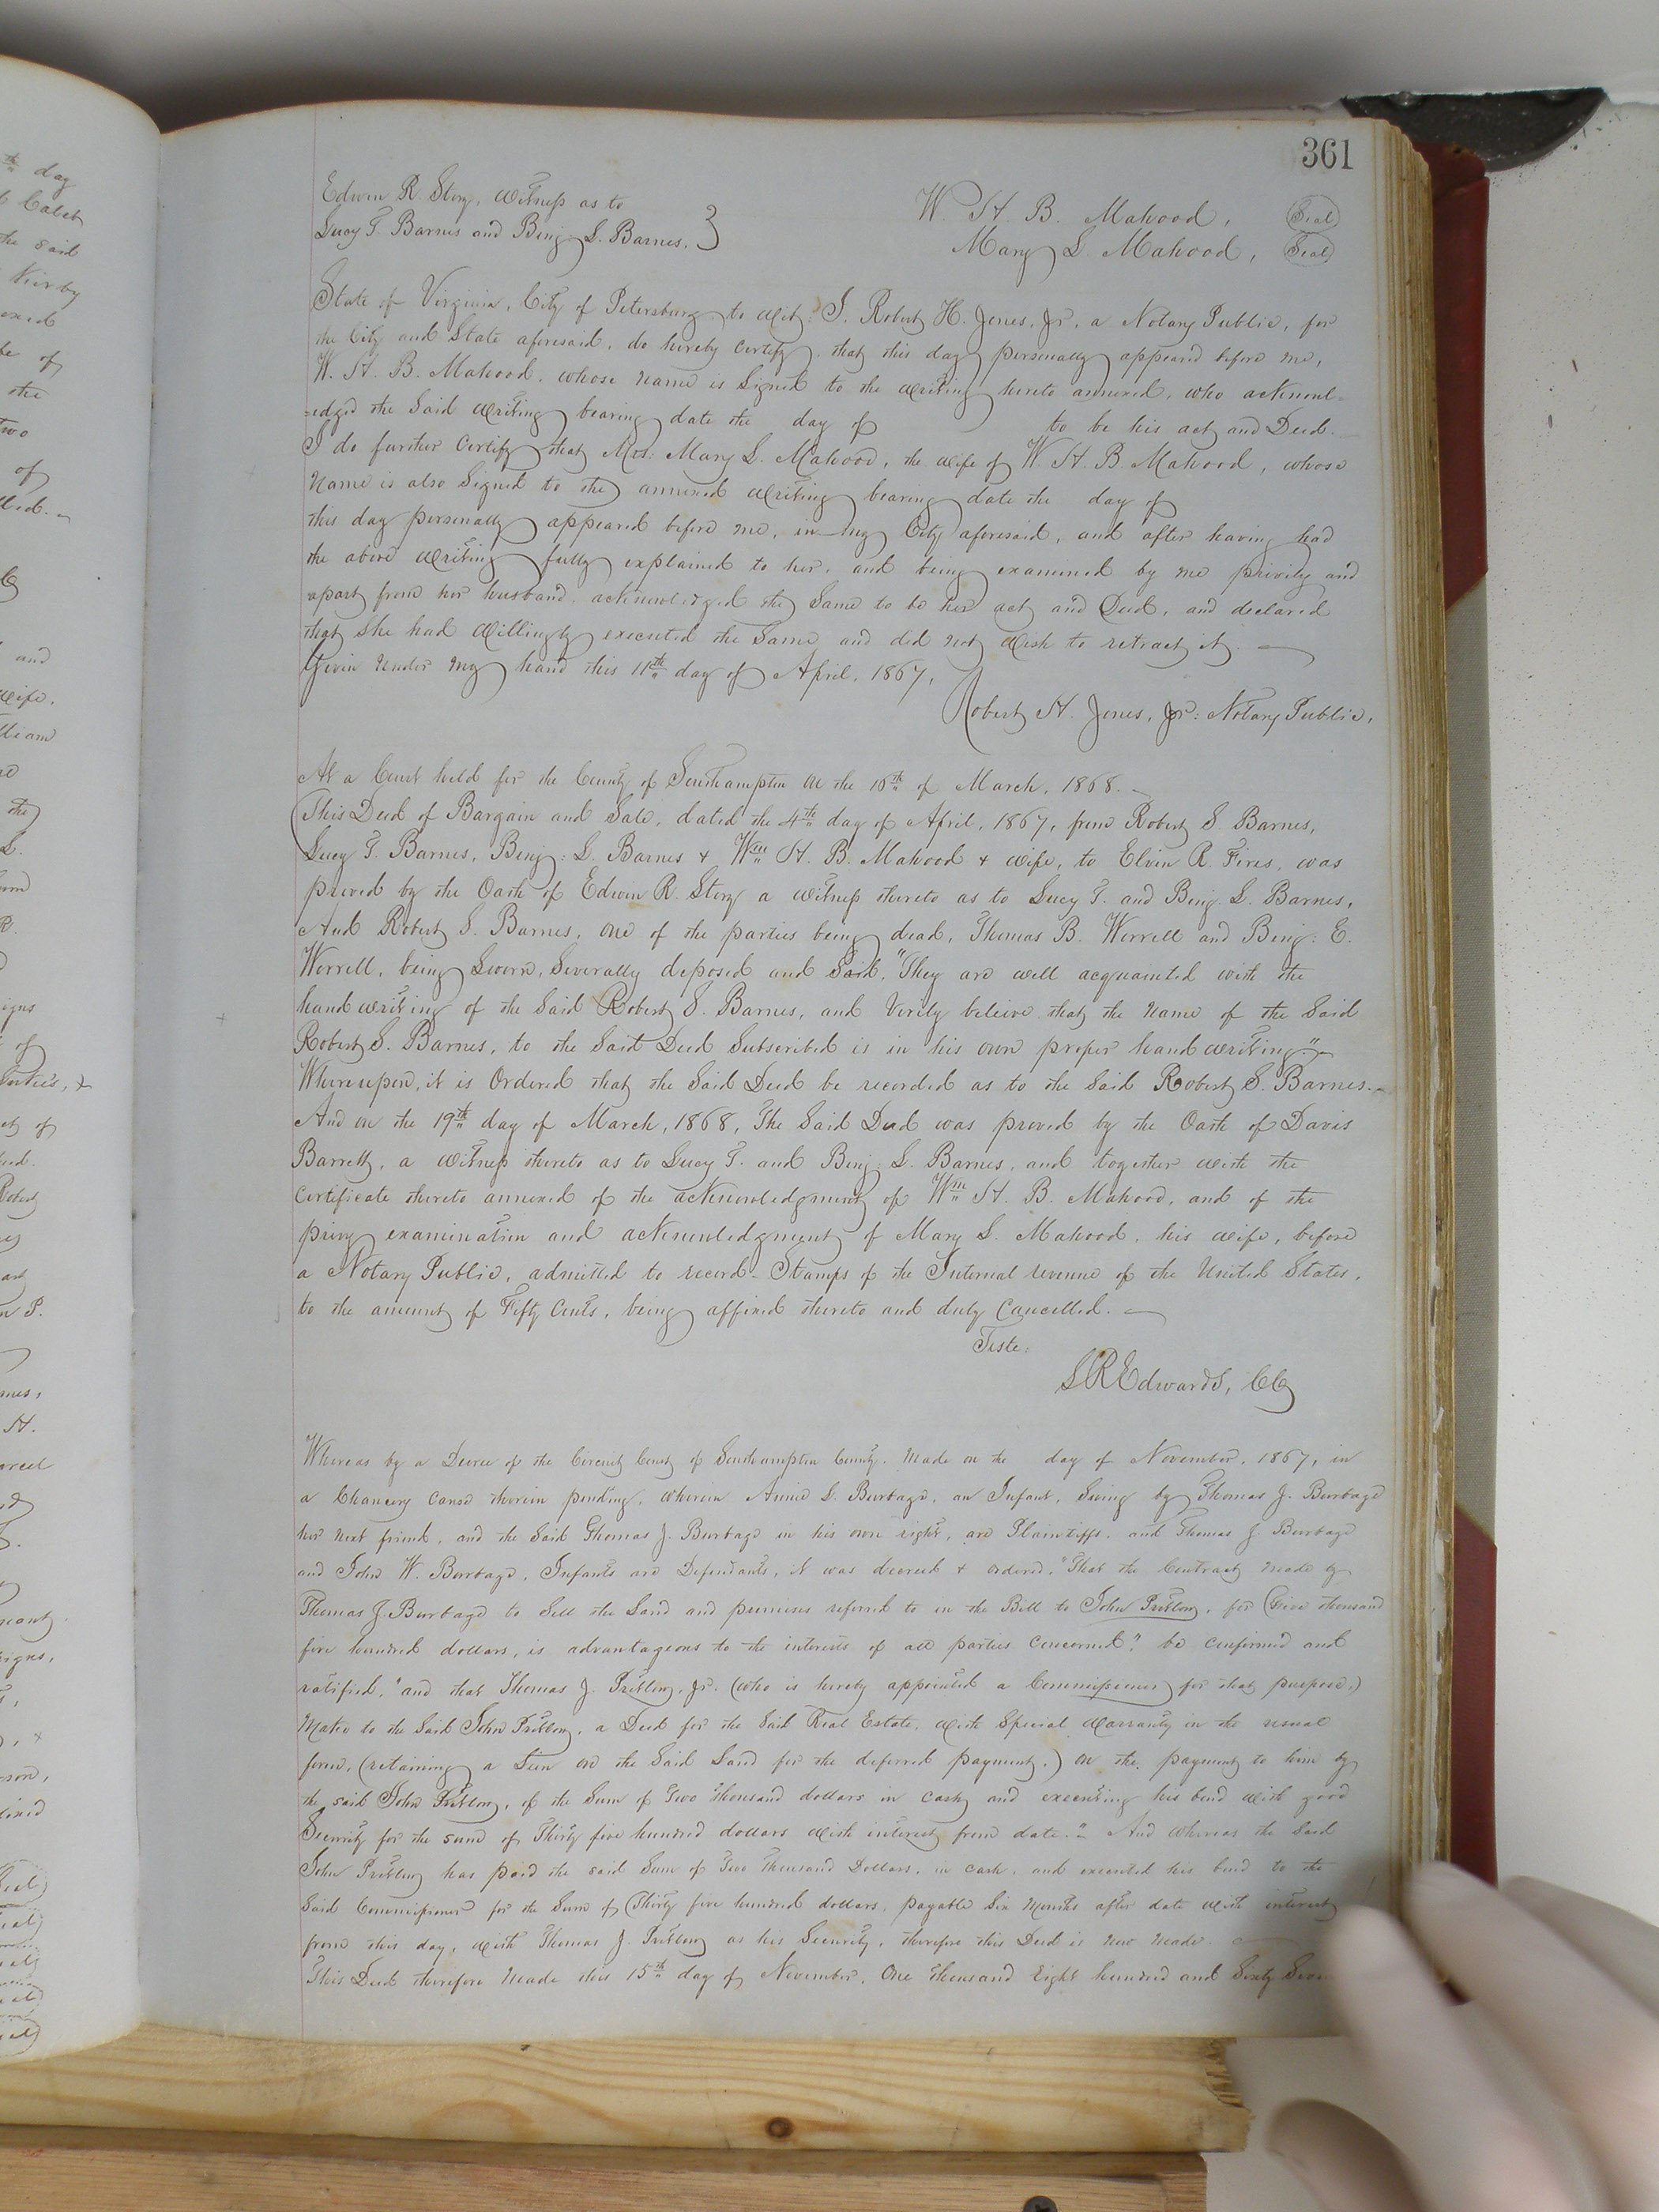 361
Edwin R. Story, witness as to
Lucy T. Barnes and Benj. L. Barnes. }
W. H. B. Mahood, (Seal)
Mary L Mahood, (Seal)
State of Virginia, City of Petersburg to wit: I, Robert H. Jones, Jr, a Notary Public, for
the City and State aforesaid, do hereby certify, that this day personally appeared before me,
W. H. B. Mahood, whose name is signed to the writing hereto annexed, who acknowl-
-edged the said writing bearing date the day of to be his act and Deed.
I do further certify that Mrs: Mary L. Mahood, the wife of W. H. B. Mahood, whose
name is also signed to the annexed writing bearing date the day of
this day personally appeared before me, in my City aforesaid, and after having had
the above writing fully explained to her, and being examined by me privily and
apart from her husband, acknowledged the same to be her act and Deed, and declared
that she had willingly executed the same and did not wish to retract it.
Given under my hand this 11th day of April, 1867,
Robert H. Jones, Jr: Notary Public,
At a Court held for the County of Southampton on the 16th of March, 1868.
This Deed of Bargain and Sale, dated the 4th day of April, 1867, from Robert S. Barnes,
Lucy T. Barnes, Benj: L. Barnes & Wm H. B. Mahood & wife, to Elvin R. Fires, was
proved by the Oath of Edwin R. Story a witness thereto as to Lucy T. and Benj. L. Barnes,
And Robert S. Barnes, one of the parties being dead, Thomas B. Worrell and Benj: E.
Worrell, being sworn, severally deposed and said, "They are well acquainted with the
hand writing of the said Robert S. Barnes, and verily beleive that the name of the said
Robert S. Barnes, to the said Deed subscribed is in his own proper hand writing."
Whereupon, it is Ordered that the said Deed be recorded as to the said Robert S. Barnes.
And on the 19th day of March, 1868, The said Deed was proved by the Oath of Davis
Barrett, a witness thereto as to Lucy T. and Benj: L. Barnes, and together with the
certificate thereto annexed of the acknowledgment of Wm H. B. Mahood, and of the
privy examination and acknowledgment of Mary L. Mahood, his wife, before
a Notary Public, admitted to record - Stamps of the Internal revenue of the United States,
to the amount of Fifty Cents, being affixed thereto and duly cancelled.
Teste:
L R Edwards, CC
Whereas by a Decree of the Circuit Court of Southampton County, made on the day of November, 1867, in
a Chancery cause therein pending, wherein Annie L. Burbage, an Infant, suing by Thomas J. Burbage
her next friend, and the said Thomas J. Burbage in his own right, are Plaintiffs, and Thomas J. Burbage
and John W. Burbage, Infants are Defendants, it was decreed & ordered, "That the Contract made by
Thomas J. Burbage to sell the Land and premises referred to in the Bill to John Pretlow, for Five thousand
five hundred dollars, is advantageous to the interests of all parties concerned," be confirmed and
ratified, "and that Thomas J. Pretlow, Jr. (who is hereby appointed a Commissioner for that purpose,)
make to the said John Pretlow, a Deed for the said Real Estate, with special warranty in the usual
form, (retaining a Lien on the said Land for the deferred payment,) on the payment to him by
the said John Pretlow, of the Sum of Two Thousand dollars in cash, and executing his bond with good
Security for the sum of Thirty five hundred dollars with interest from date." And whereas the said
John Pretlow has paid the said Sum of Two Thousand Dollars, in cash, and executed his bond to the
said Commissioner for the Sum of Thirty five hundred dollars, payable Six Months after date with interest
from this day, with Thomas J. Pretlow as his Security, therefore this Deed is now made.
This Deed therefore made this 15th day of November, One thousand Eight hundred and Sixty Seven